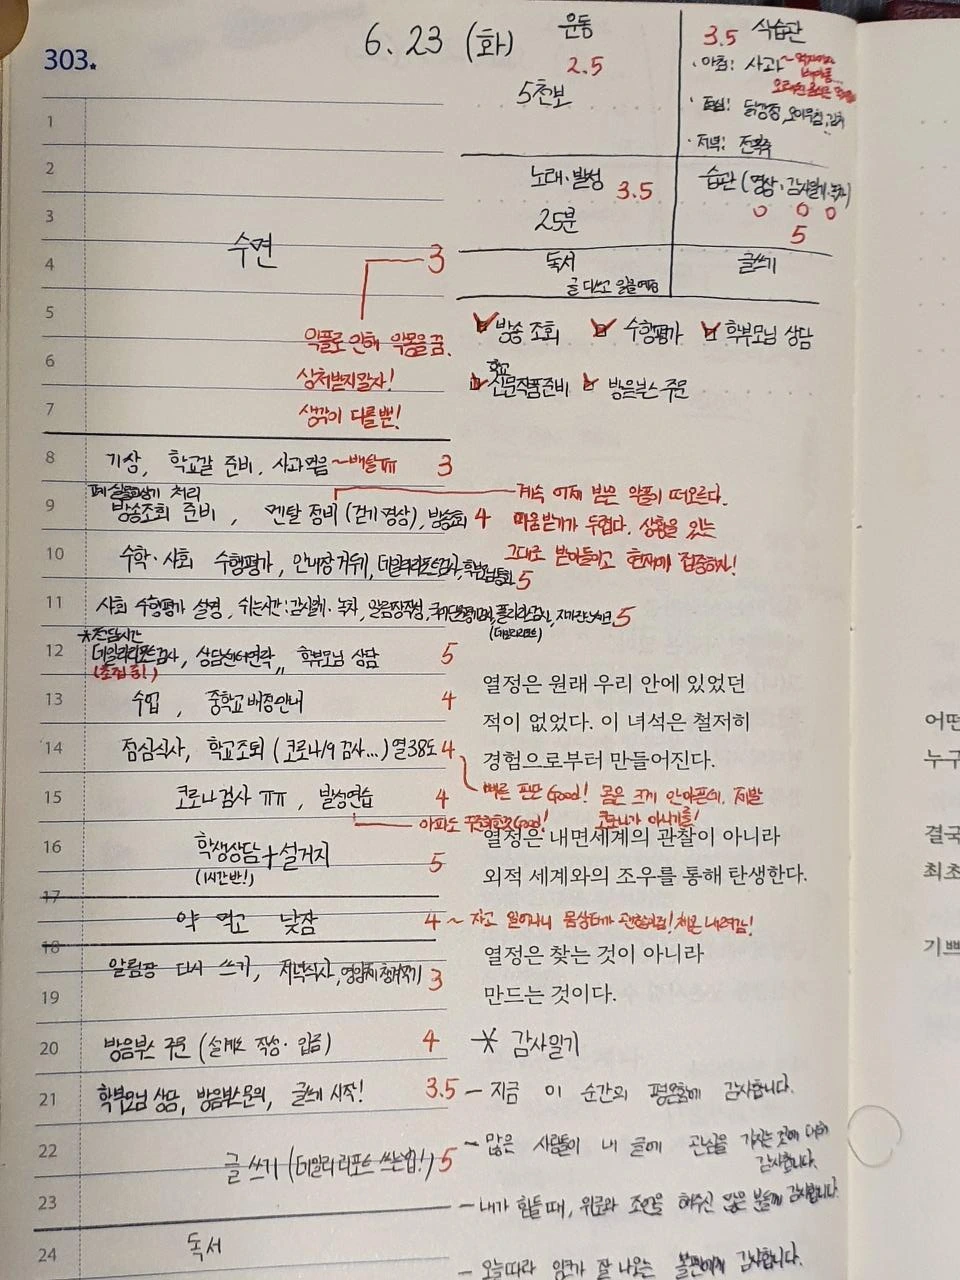 303.
6. 23 (화)
운동
2.5
5천보
3.5 식습관
· 아침: 사과~
· 점심: 닭강정, 오이무침, 김치
· 저녁: 전복죽
노래·발성 3.5
25분
습관 (명상·감사일기·녹차)
0 0 0
5
독서
글 다쓰고 읽을 예정
글쓰기
방송 조회
수행평가
학부모님 상담
학교
신문작품준비
방음부스 주문
1
2
3
수면
3
4
5
악플로 인해 악몽을 꿈.
6
상처받지말자!
7
생각이 다를뿐!
8 기상, 학교갈 준비, 사과먹음 ~배탈ㅠㅠ 3
처리
9 방송조회 준비, 멘탈 정비 (걷기 명상), 방송조회 4
계속 어제 받은 악플이 떠오른다.
마음받기가 두렵다. 상황을 있는
그대로 받아들이고 현재에 집중하자!
10 수학·사회 수행평가, 안내장 거두기, 데일리리포트검사, 학부모님통화 5
11 사회 수행평가 설명, 쉬는시간: 감사일기·녹차, 알림장작성, 5
(데일리리포트)
*전담시간
12 데일리리포트검사, 상담센터연락, 학부모님 상담 5
(초집중!)
13 수업, 중학교 배정안내 4
14 점심식사, 학교조퇴 (코로나19 검사...) 열38도 4
빠른 판단 Good! 몸은 크게 안아픈데. 제발
코로나가 아니기를!
15 코로나검사 ㅠㅠ, 발성연습 4
아파도 꾸준히한것 Good!
16 학생상담 + 설거지 5
(1시간 반!)
17
약 먹고 낮잠 4 ~ 자고 일어나니 몸상태가 괜찮아짐! 체온 내려감!
18
19 알림장 다시 쓰기, 저녁식사, 영양제 챙겨먹기 3
20 방음부스 주문 (설계도 작성·입금) 4
21 학부모님 상담, 방음부스문의, 글쓰기 시작! 3.5
22 글 쓰기 (데일리 리포트 쓰는법!) 5
23
24 독서
열정은 원래 우리 안에 있었던
적이 없었다. 이 녀석은 철저히
경험으로부터 만들어진다.
열정은 내면세계의 관찰이 아니라
외적 세계와의 조우를 통해 탄생한다.
열정은 찾는 것이 아니라
만드는 것이다.
* 감사일기
– 지금 이 순간의 평온함에 감사합니다.
– 많은 사람들이 내 글에 관심을 가지는 것에 대해
감사합니다.
– 내가 힘들 때, 위로와 조언을 해주신 많은 분들께 감사합니다.
– 오늘따라 잉크가 잘 나오는 볼펜에게 감사합니다.
어떤
누구
결국
최초
기쁘